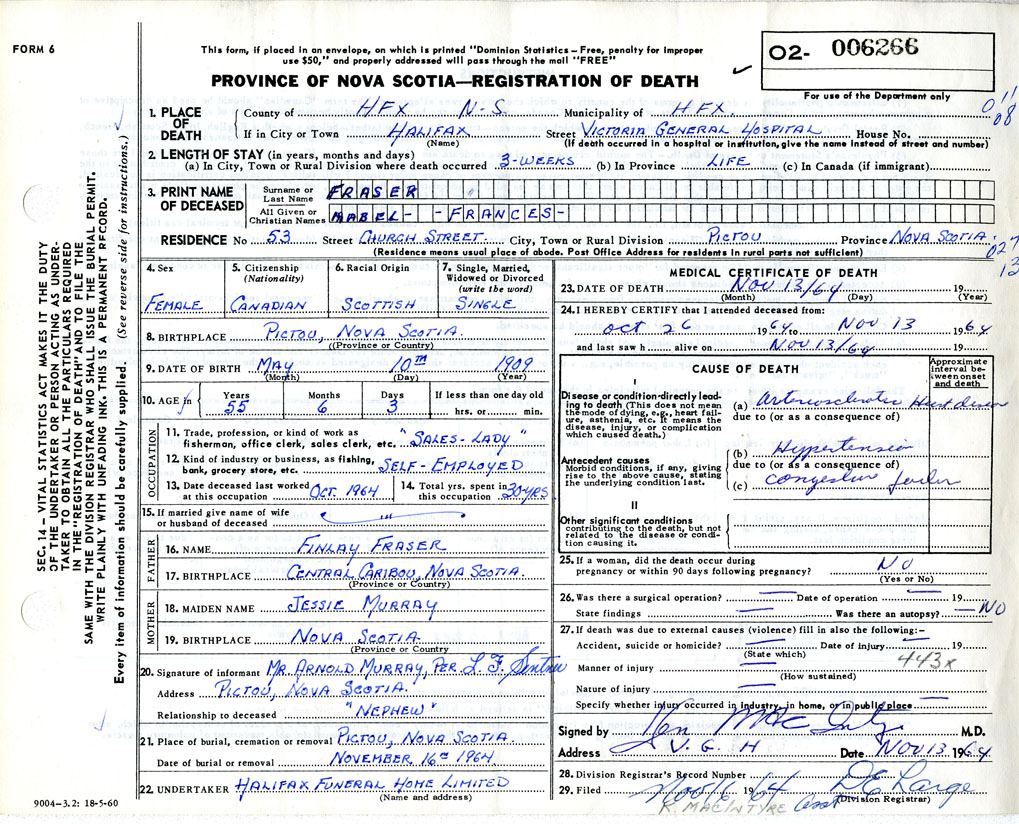 FORM 6
This form, if placed in an envelope, on which is printed "Dominion Statistics – Free, penalty for improper
use $50," and properly addressed will pass through the mail "FREE"
PROVINCE OF NOVA SCOTIA—REGISTRATION OF DEATH
O2- 006266
For use of the Department only
011
08
1. PLACE OF DEATH
County of HFX N-S. Municipality of HFX.
If in City or Town HALIFAX Street VICTORIA GENERAL HOSPITAL House No.
(Name) (If death occurred in a hospital or institution, give the name instead of street and number)
2. LENGTH OF STAY (in years, months and days)
(a) In City, Town or Rural Division where death occurred 3-WEEKS (b) In Province LIFE (c) In Canada (if immigrant)
3. PRINT NAME OF DECEASED
Surname or Last Name FRASER
All Given or Christian Names MABEL- -FRANCES-
RESIDENCE No 53 Street CHURCH STREET. City, Town or Rural Division PICTOU Province NOVA SCOTIA.
(Residence means usual place of abode. Post Office Address for residents in rural parts not sufficient)
027
13
4. Sex FEMALE
5. Citizenship (Nationality) CANADIAN
6. Racial Origin SCOTTISH
7. Single, Married, Widowed or Divorced (write the word) SINGLE
8. BIRTHPLACE PICTOU, NOVA SCOTIA.
((Province or Country)
9. DATE OF BIRTH MAY 10TH 1909
(Month) (Day) (Year)
10. AGE in Years 55 Months 6 Days 3 If less than one day old hrs. or min.
OCCUPATION
11. Trade, profession, or kind of work as
fisherman, office clerk, sales clerk, etc. "SALES-LADY"
12. Kind of industry or business, as fishing,
bank, grocery store, etc. SELF-EMPLOYED
13. Date deceased last worked at this occupation OCT. 1964
14. Total yrs. spent in this occupation 30YRS
15. If married give name of wife
or husband of deceased
FATHER
16. NAME FINLAY FRASER
17. BIRTHPLACE CENTRAL CARIBOU, NOVA SCOTIA.
(Province or Country)
MOTHER
18. MAIDEN NAME JESSIE MURRAY
19. BIRTHPLACE NOVA SCOTIA.
(Province or Country
20. Signature of informant MR. ARNOLD MURRAY, PER. L. F.
Address PICTOU, NOVA SCOTIA.
Relationship to deceased "NEPHEW"
21. Place of burial, cremation or removal PICTOU, NOVA SCOTIA.
Date of burial or removal NOVEMBER 16TH 1964
22. UNDERTAKER HALIFAX FUNERAL HOME LIMITED
(Name and address)
9004-3.2: 18-5-60
MEDICAL CERTIFICATE OF DEATH
23. DATE OF DEATH NOV 13/64 19
(Month) (Day) (Year)
24. I HEREBY CERTIFY that I attended deceased from:
Oct 26 1964 to Nov 13 1964
and last saw h alive on Nov 13/64 19
CAUSE OF DEATH
Approximate interval between onset and death
I
Disease or condition directly leading to death (This does not mean the mode of dying, e.g., heart failure, asthenia, etc. It means the disease, injury, or complication which caused death.)
(a) Arteriosclerotic Heart disease
due to (or as a consequence of)
Antecedent causes
Morbid conditions, if any, giving rise to the above cause, stating the underlying condition last.
(b) Hypertension
due to (or as a consequence of)
(c) congestive failure
II
Other significant conditions
contributing to the death, but not related to the disease or condition causing it.
25. If a woman, did the death occur during
pregnancy or within 90 days following pregnancy? NO
(Yes or No)
26. Was there a surgical operation? — Date of operation — 19
State findings — Was there an autopsy? — NO
27. If death was due to external causes (violence) fill in also the following:–
Accident, suicide or homicide? — Date of injury — 19
(State which) 443x
Manner of injury —
(How sustained)
Nature of injury —
Specify whether injury occurred in industry, in home, or in public place —
Signed by Ken M.D.
Address V. G. H Date NOV 13 1964
28. Division Registrar's Record Number
29. Filed Nov 16 1964 DE Large
K. MACINTYRE (Division Registrar)
SEC. 14 – VITAL STATISTICS ACT MAKES IT THE DUTY
OF THE UNDERTAKER OR PERSON ACTING AS UNDER-
TAKER TO OBTAIN ALL THE PARTICULARS REQUIRED
IN THE "REGISTRATION OF DEATH" AND TO FILE THE
SAME WITH THE DIVISION REGISTRAR WHO SHALL ISSUE THE BURIAL PERMIT.
WRITE PLAINLY WITH UNFADING INK. THIS IS A PERMANENT RECORD.
Every item of information should be carefully supplied. (See reverse side for instructions.)